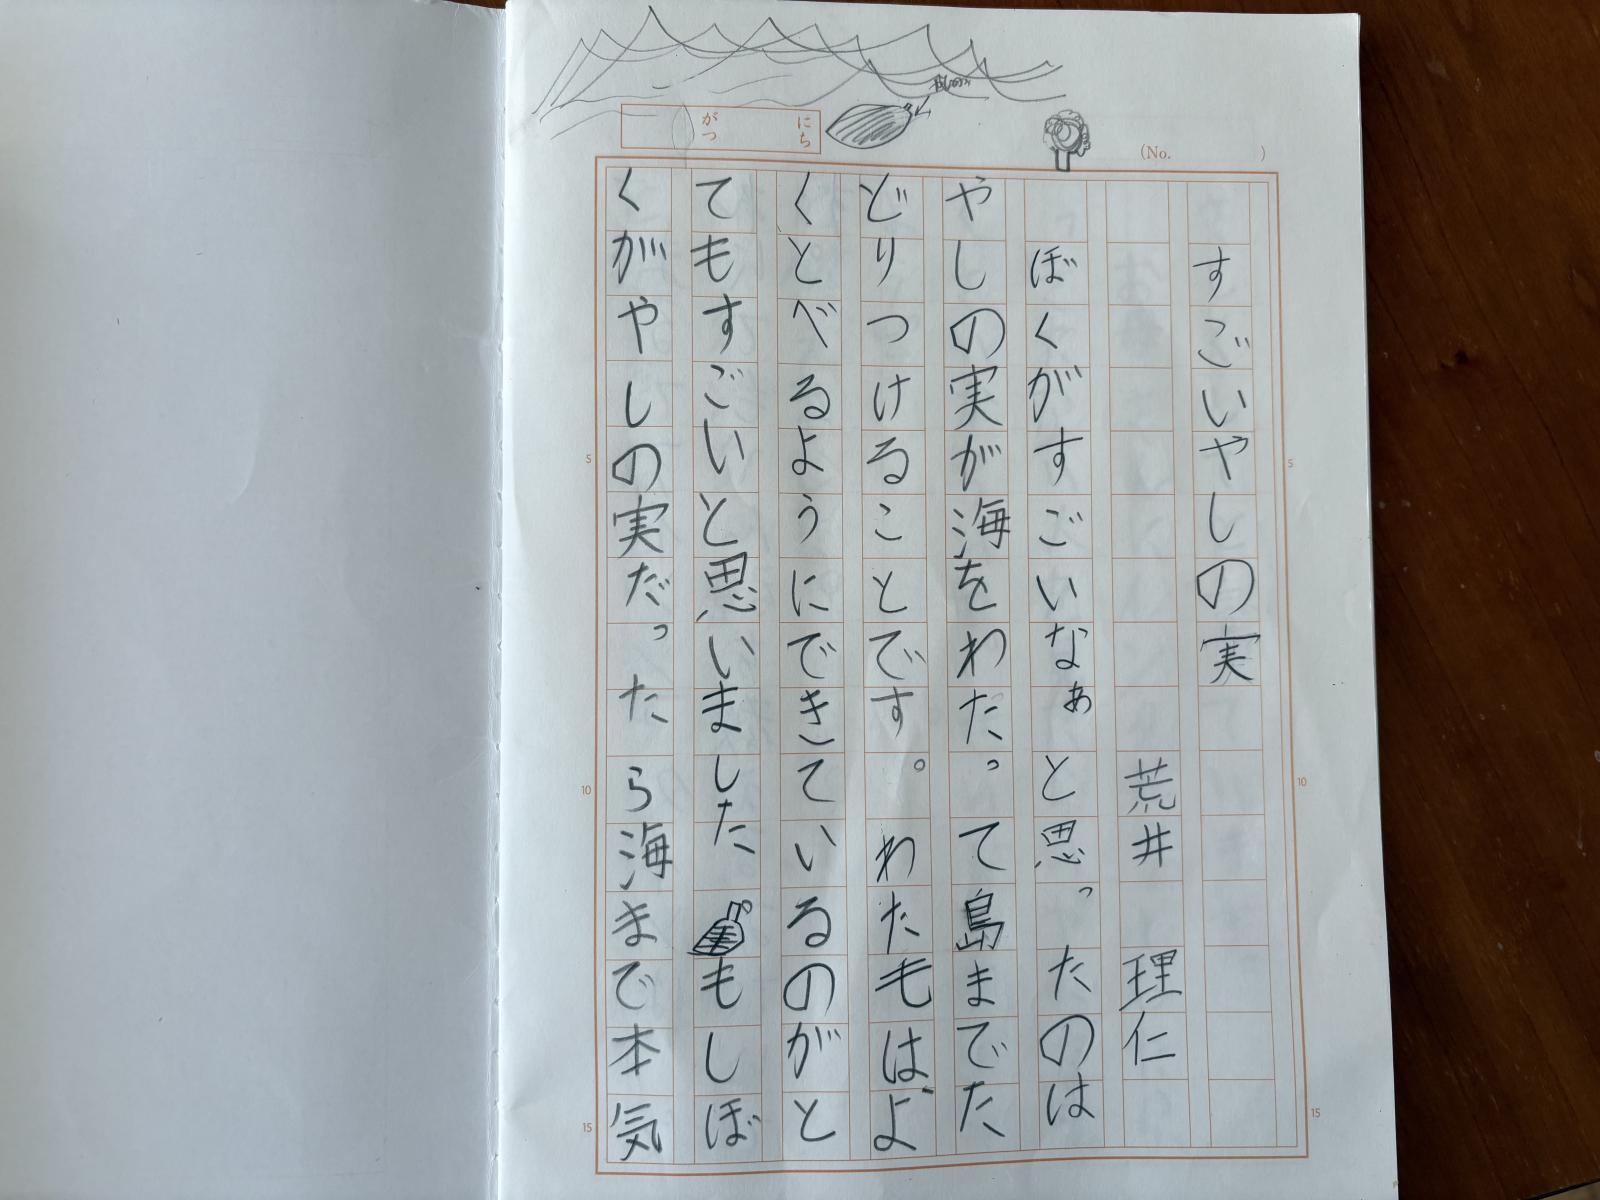 (No. )
がつ にち
すごいやしの実
荒井 理仁
ぼくがすごいなぁと思ったのは
やしの実が海をわたって島までた
どりつけることです。わた毛は、よ
くとべるようにできているのがと
てもすごいと思いました もしぼ
くがやしの実だったら海まで本気
5
10
15
5
10
15